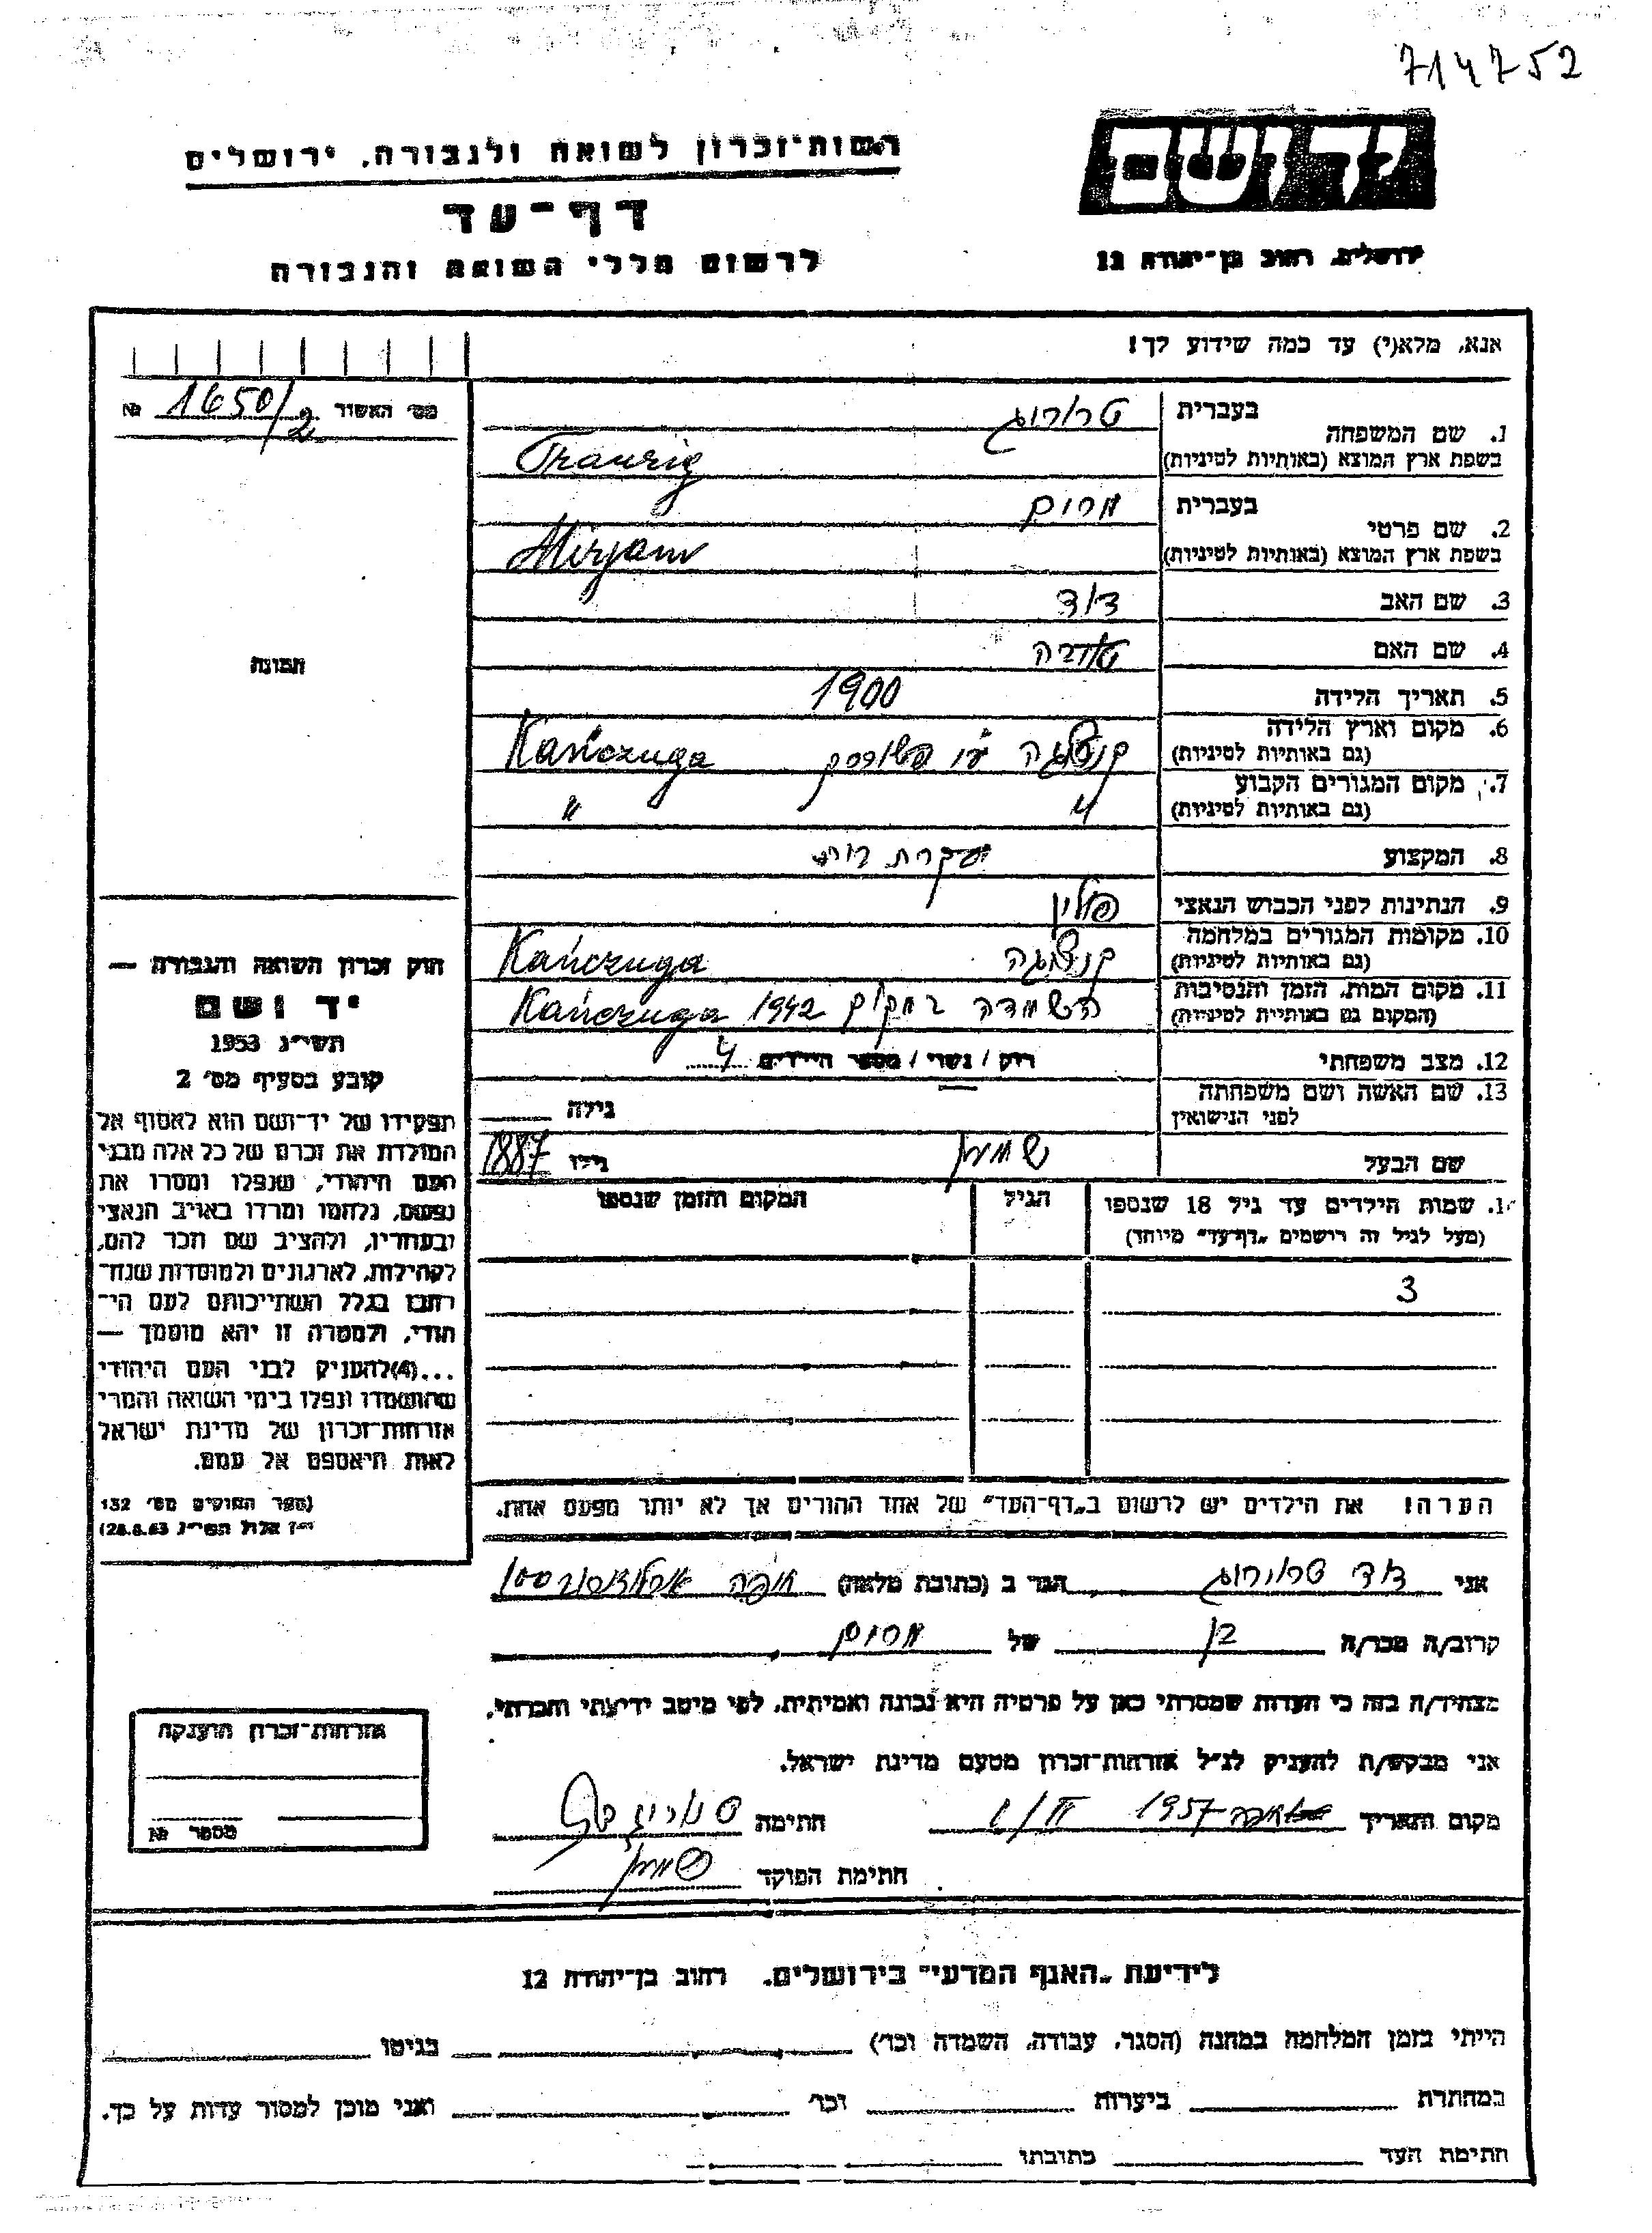 714752
רשות־זכרון לשואה ולגבורה, ירושלים
יד ושם
דף־עד
לרשום חללי השואה והגבורה
ירושלים, רחוב בן־יהודה 12
אנא, מלא(י) עד כמה שידוע לך!
מס׳ האשור 1650/2 №
תמונה
1. שם המשפחה
בעברית טראוריג
בשפת ארץ המוצא (באותיות לטיניות) Traurig
2. שם פרטי
בעברית מרים
בשפת ארץ המוצא (באותיות לטיניות) Mirjam
3. שם האב דוד
4. שם האם
5. תאריך הלידה 1900
6. מקום וארץ הלידה
(גם באותיות לטיניות) קנצ'וגה Kańczuga
7. מקום המגורים הקבוע
(גם באותיות לטיניות) " "
8. המקצוע עקרת בית
9. הנתינות לפני הכבוש הנאצי פולין
10. מקומות המגורים במלחמה
(גם באותיות לטיניות) קנצ'וגה Kańczuga
11. מקום המות, הזמן והנסיבות
(המקום גם באותיות לטיניות) השמדה במקום 1942 Kańczuga
12. מצב משפחתי רוק / נשוי / מספר הילדים 4
13. שם האשה ושם משפחתה
לפני הנישואין גילה
שם הבעל שמעון גילו 1887
14. שמות הילדים עד גיל 18 שנספו
(מעל לגיל זה רושמים „דף־עד" מיוחד)
הגיל
המקום והזמן שנספו
3
הערה! את הילדים יש לרשום ב„דף־העד" של אחד ההורים אך לא יותר מפעם אחת.
חוק זכרון השואה והגבורה —
יד ושם
תשי״ג 1953
קובע בסעיף מס׳ 2
תפקידו של יד־ושם הוא לאסוף אל
המולדת את זכרם של כל אלה מבני
העם היהודי, שנפלו ומסרו את
נפשם, נלחמו ומרדו באויב הנאצי
ובעוזריו, ולהציב שם וזכר להם,
לקהילות, לארגונים ולמוסדות שנח־
רבו בגלל השתייכותם לעם הי־
הודי, ולמטרה זו יהא מוסמך —
...(4)להעניק לבני העם היהודי
שהושמדו ונפלו בימי השואה והמרי
אזרחות־זכרון של מדינת ישראל
לאות היאספם אל עמם.
(ספר החוקים מס׳ 132
י״ז אלול תשי״ג 28.8.53)
אני דוד טראוריג הגר ב (כתובת מלאה) חיפה ארלוזורוב 100
קרוב/ה מכר/ה בן של מרים
מצהיר/ה בזה כי העדות שמסרתי כאן על פרטיה היא נכונה ואמיתית, לפי מיטב ידיעתי והכרתי.
אני מבקש/ת להעניק לנ״ל אזרחות־זכרון מטעם מדינת ישראל.
מקום ותאריך חיפה 1957 חתימה
חתימת הפוקד
אזרחות־זכרון הוענקה
מספר №
לידיעת „האגף המדעי" בירושלים, רחוב בן־יהודה 12
הייתי בזמן המלחמה במחנה (הסגר, עבודה, השמדה וכו׳) בגיטו
במחתרת ביערות וכו׳ ואני מוכן למסור עדות על כך.
חתימת העד כתובתו